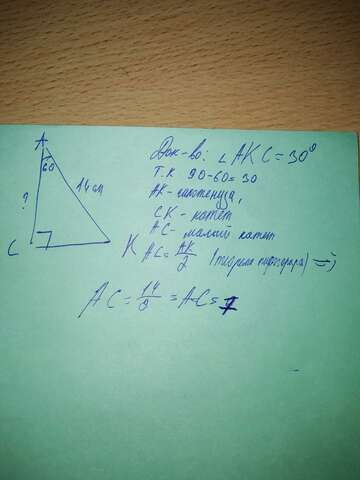 A
60
14 см
?
C
K
Док-во: ∠AKC = 30°
Т.К 90-60=30
AK - гипотенуза,
CK - катет
AC - малый катет
AC = AK/2 (теорема пифагора) =>
AC = 14/2 = AC = 7